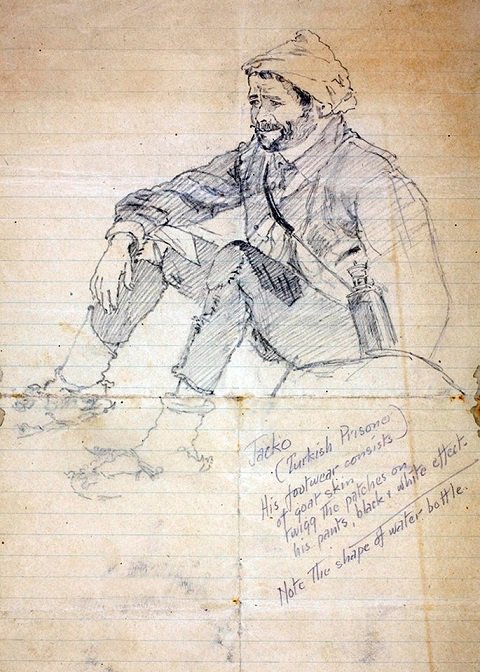 Jacko
(Turkish Prisoner)
His footwear consists
of goat skin
twigg the patches on
his pants, black & white effect.
Note The shape of water bottle.